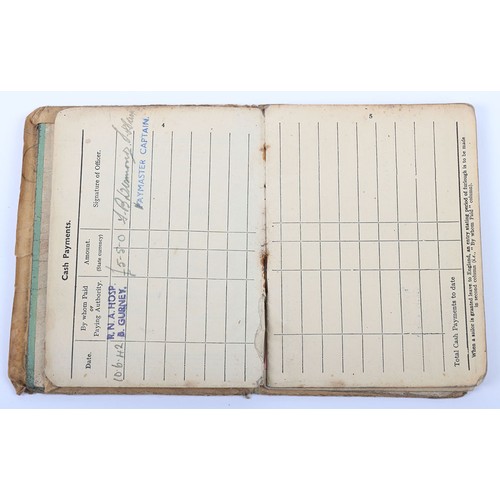 Cash Payments.
4
Date.
By whom Paid
or
Paying Authority.
Amount.
(State currency)
Signature of Officer.
10.6.42
R.N.A. HOSP.
B. GURNEY.
5-5-0
PAYMASTER CAPTAIN.
5
Total Cash Payments to date
When a sailor is granted leave to England, an entry stating period of furlough is to be made
in second column (i.e. "By whom Paid" column).